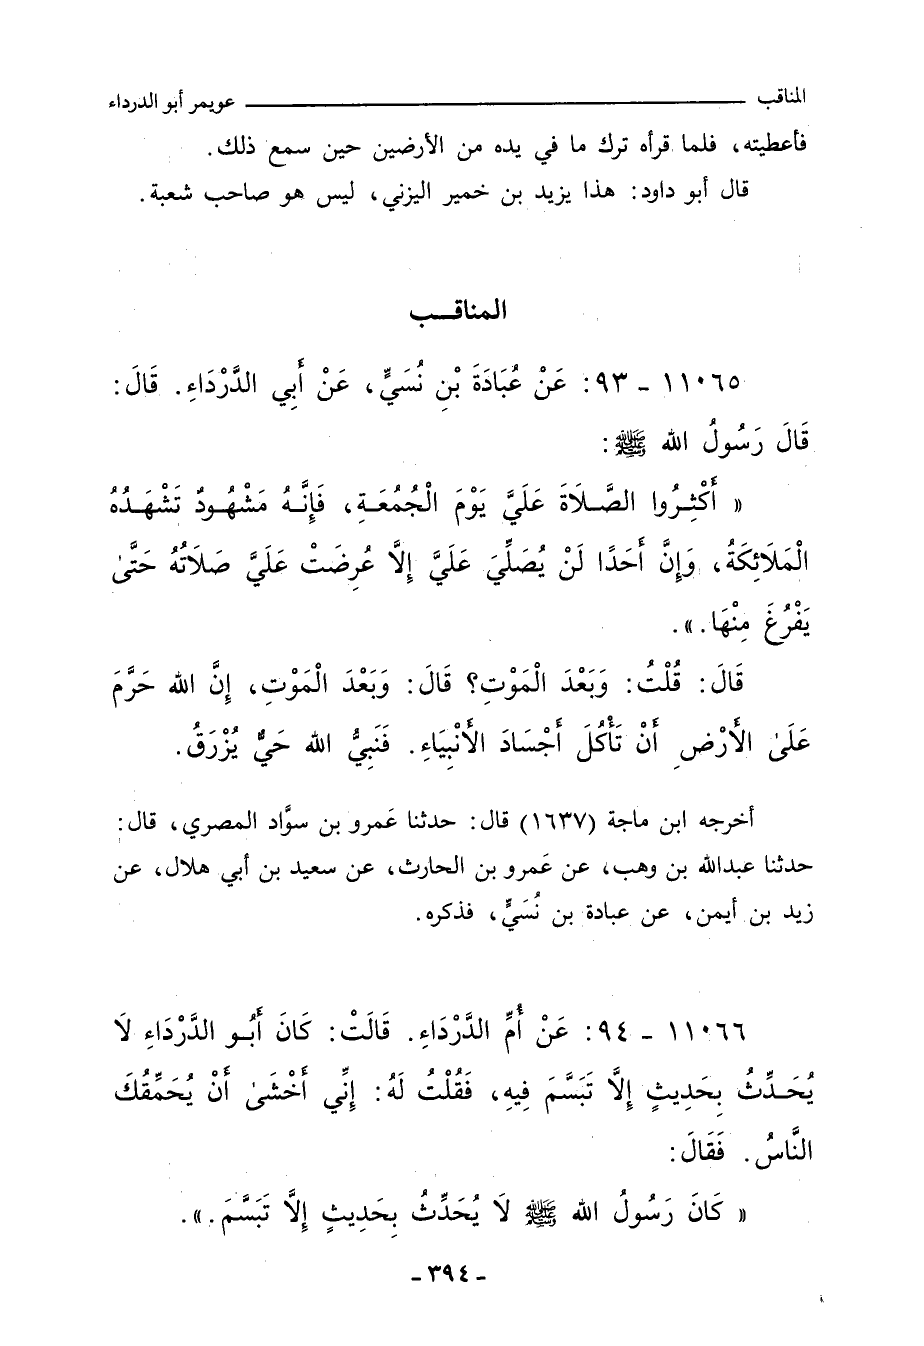 المناقب ــــــــــــــــ عويمر أبو الدرداء
فأعطيته، فلما قرأه ترك ما في يده من الأرضين حين سمع ذلك.
قال أبو داود: هذا يزيد بن خمير اليزني، ليس هو صاحب شعبة.
المناقـب
١١٠٦٥ - ٩٣: عَنْ عُبَادَةَ بْنِ نُسَيٍّ، عَنْ أَبِي الدَّرْدَاءِ. قَالَ:
قَالَ رَسُولُ الله ﷺ:
« أَكْثِـرُوا الصَّـلَاةَ عَلَيَّ يَوْمَ الْجُمُعَـةِ، فَإِنَّـهُ مَشْهُودٌ تَشْهَـدُهُ
الْمَلَائِكَةُ، وَإِنَّ أَحَدًا لَنْ يُصَلِّيَ عَلَيَّ إِلَّا عُرِضَتْ عَلَيَّ صَلَاتُهُ حَتَّىٰ
يَفْرُغَ مِنْهَا.».
قَالَ: قُلْتُ: وَبَعْدَ الْمَوْتِ؟ قَالَ: وَبَعْدَ الْمَوْتِ، إِنَّ الله حَرَّمَ
عَلَىٰ الْأَرْضِ أَنْ تَأْكُلَ أَجْسَادَ الْأَنْبِيَاءِ. فَنَبِيُّ الله حَيٌّ يُرْزَقُ.
أخرجه ابن ماجة (١٦٣٧) قال: حدثنا عَمرو بن سوَّاد المصري، قال:
حدثنا عبدالله بن وهب، عن عَمرو بن الحارث، عن سعيد بن أبي هلال، عن
زيد بن أيمن، عن عبادة بن نُسَيٍّ، فذكره.
١١٠٦٦ - ٩٤: عَنْ أُمِّ الدَّرْدَاءِ. قَالَتْ: كَانَ أَبُـو الدَّرْدَاءِ لَا
يُحَـدِّثُ بِحَدِيثٍ إِلَّا تَبَسَّمَ فِيهِ، فَقُلْتُ لَهُ: إِنِّي أَخْشَىٰ أَنْ يُحَمِّقُكَ
النَّاسُ. فَقَالَ:
« كَانَ رَسُولُ الله ﷺ لَا يُحَدِّثُ بِحَدِيثٍ إِلَّا تَبَسَّمَ.».
- ٣٩٤ -